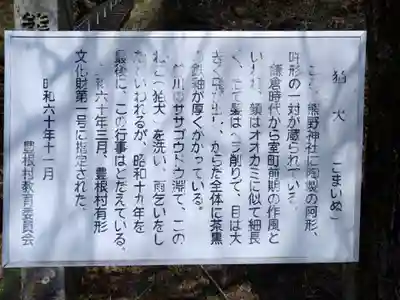 熊
狛犬（こまいぬ）
熊野神社に陶製の阿形、
吽形の一対が蔵されている。
鎌倉時代から室町前期の作風と
いわれ、顔はオオカミに似て細長
く、髪はヘラ削りで、目は大
きく、からだ全体に茶黒
鉄釉が厚くかかっている。
川のササゴウドウ淵で、この
狛犬を洗い、雨乞いをし
たといわれるが、昭和十九年を
最後に、この行事はとだえている。
六十年三月、豊根村有形
文化財第二号に指定された。
昭和六十年十一月
豊根村教育委員会